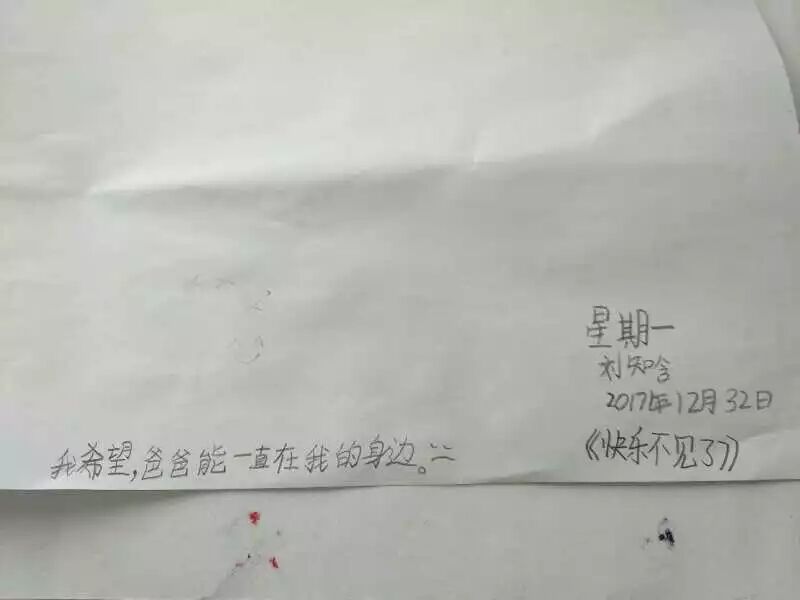 星期一
刘知含
2017年12月32日
我希望,爸爸能一直在我的身边。
《快乐不见了》